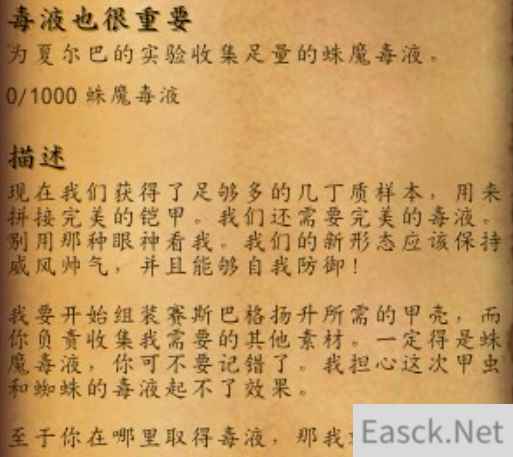 毒液也很重要
为夏尔巴的实验收集足量的蛛魔毒液。
0/1000 蛛魔毒液
描述
现在我们获得了足够多的几丁质样本，用来
拼接完美的铠甲。我们还需要完美的毒液。
别用那种眼神看我。我们的新形态应该保持
威风帅气，并且能够自我防御！
我要开始组装赛斯巴格扬升所需的甲壳，而
你负责收集我需要的其他素材。一定得是蛛
魔毒液，你可不要记错了。我担心这次甲虫
和蜘蛛的毒液起不了效果。
至于你在哪里取得毒液，那我
Easck.Net